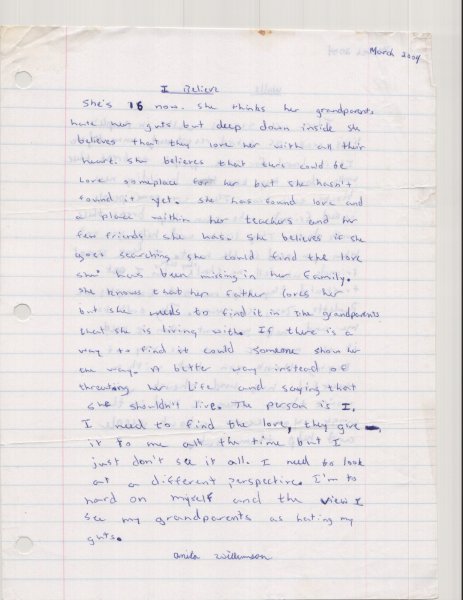 March 2004
I Believe
She's 16 now. She thinks her grandparents
hate her guts but deep down inside she
believes that they love her with all their
heart. She believes that there could be
Love someplace for her but she hasn't
found it yet. She has found love and
a place within her teachers and her
few friends she has. She believes if she
goes searching she could find the love
she has been missing in her family.
She knows that her father loves her
but she needs to find it in the grandparents
that she is living with. If there is a
way to find it could someone show her
one way. A better way instead of
threatning her life and saying that
she shouldn't live. The person is I.
I need to find the love, they give
it to me all the time but I
just don't see it all. I need to look
at a different perspective. I'm to
hard on myself and the view I
see my grandparents as hating my
guts.
Williamson